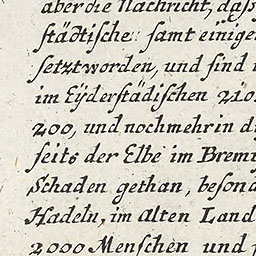 aber die Nachricht, daß
städtische samt einige
setzt worden, und sind
im Eÿderstädischen 210
200, und noch mehr in d
seits der Elbe im Brem
Schaden gethan, beson
Hadeln, im Alten Land
2000 Menschen und